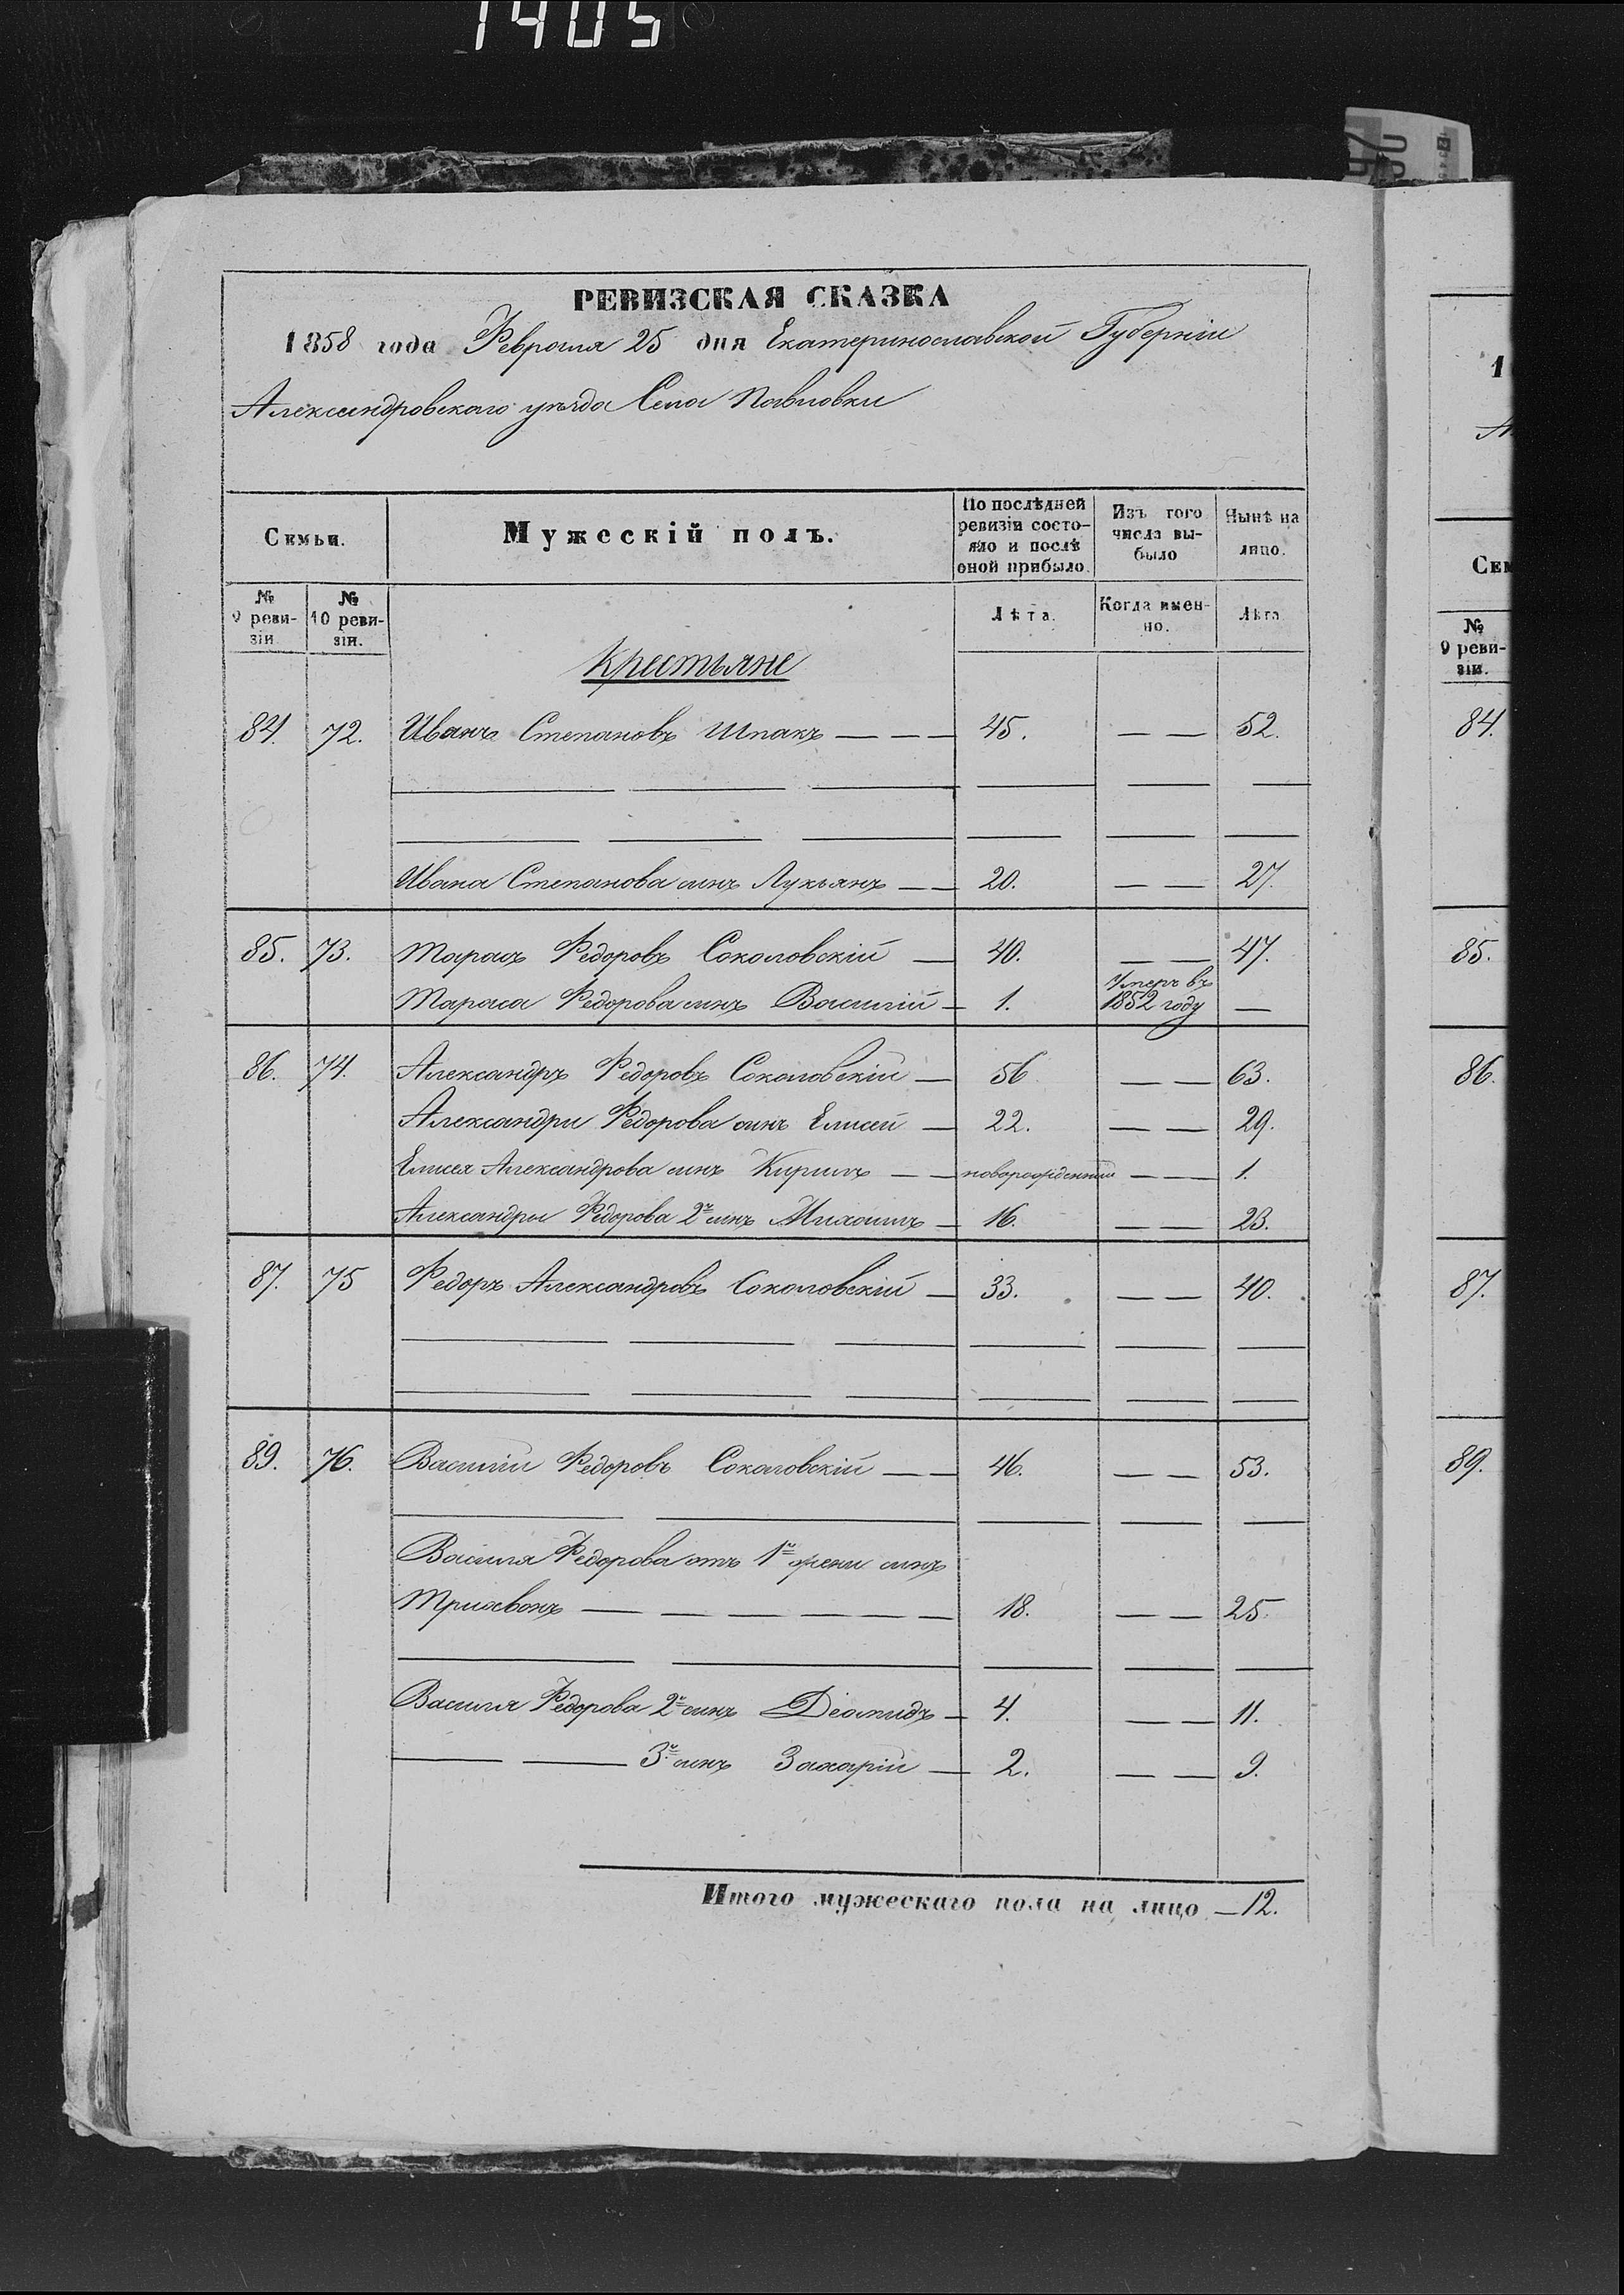 1405
РЕВИЗСКАЯ СКАЗКА
1858 года Февраля 25 дня Екатеринославской Губерніи
Александровскаго уѣзда Села Павловки
Семьи. Мужескій полъ. По послѣдней ревизіи состояло и послѣ оной прибыло. Изъ того числа выбыло Нынѣ на лицо.
№ 9 ревизіи. № 10 ревизіи. Лѣта. Когда именно. Лѣта
Крестьяне
84. 72. Иванъ Степановъ Шпакъ — — — 45. — — 52.
Ивана Степанова синъ Лукьянъ — — 20. — — 27.
85. 73. Тарасъ Федоровъ Соколовскій — 40. — — 47.
Тараса Федорова синъ Василій — 1. Умеръ въ 1852 году —
86. 74. Александръ Федоровъ Соколовскій — 56 — — 63.
Александри Федорова синъ Елисей — 22. — — 29.
Елисея Александрова синъ Кирилъ — — новорожденній — — 1.
Александры Федорова 2й синъ Михаилъ — 16. — — 23.
87. 75 Федоръ Александровъ Соколовскій — 33. — — 40.
89. 76. Василій Федоровъ Соколовскій — — 46. — — 53.
Василя Федорова отъ 1й жени синъ
Трихвонъ — — — — — — — 18. — — 25.
Василя Федорова 2й синъ Діомидъ — 4. — — 11.
— — 3й синъ Захарій — 2. — — 9.
Итого мужескаго пола на лицо — 12.
1
А
Сем
№
9 реви-
зіи.
84.
85.
86.
87.
89.